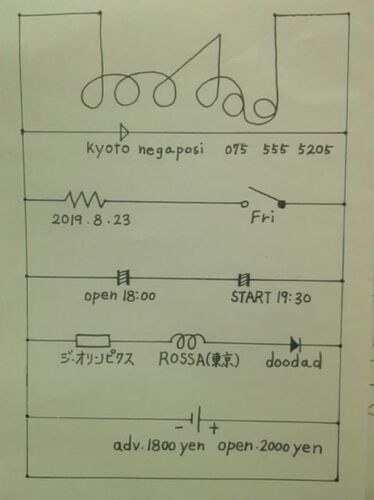 kyoto negaposi 075 555 5205
2019.8.23 Fri
open 18:00 START 19:30
ジ・オリンピクス ROSSA(東京) doodad
- +
adv.1800 yen open.2000 yen